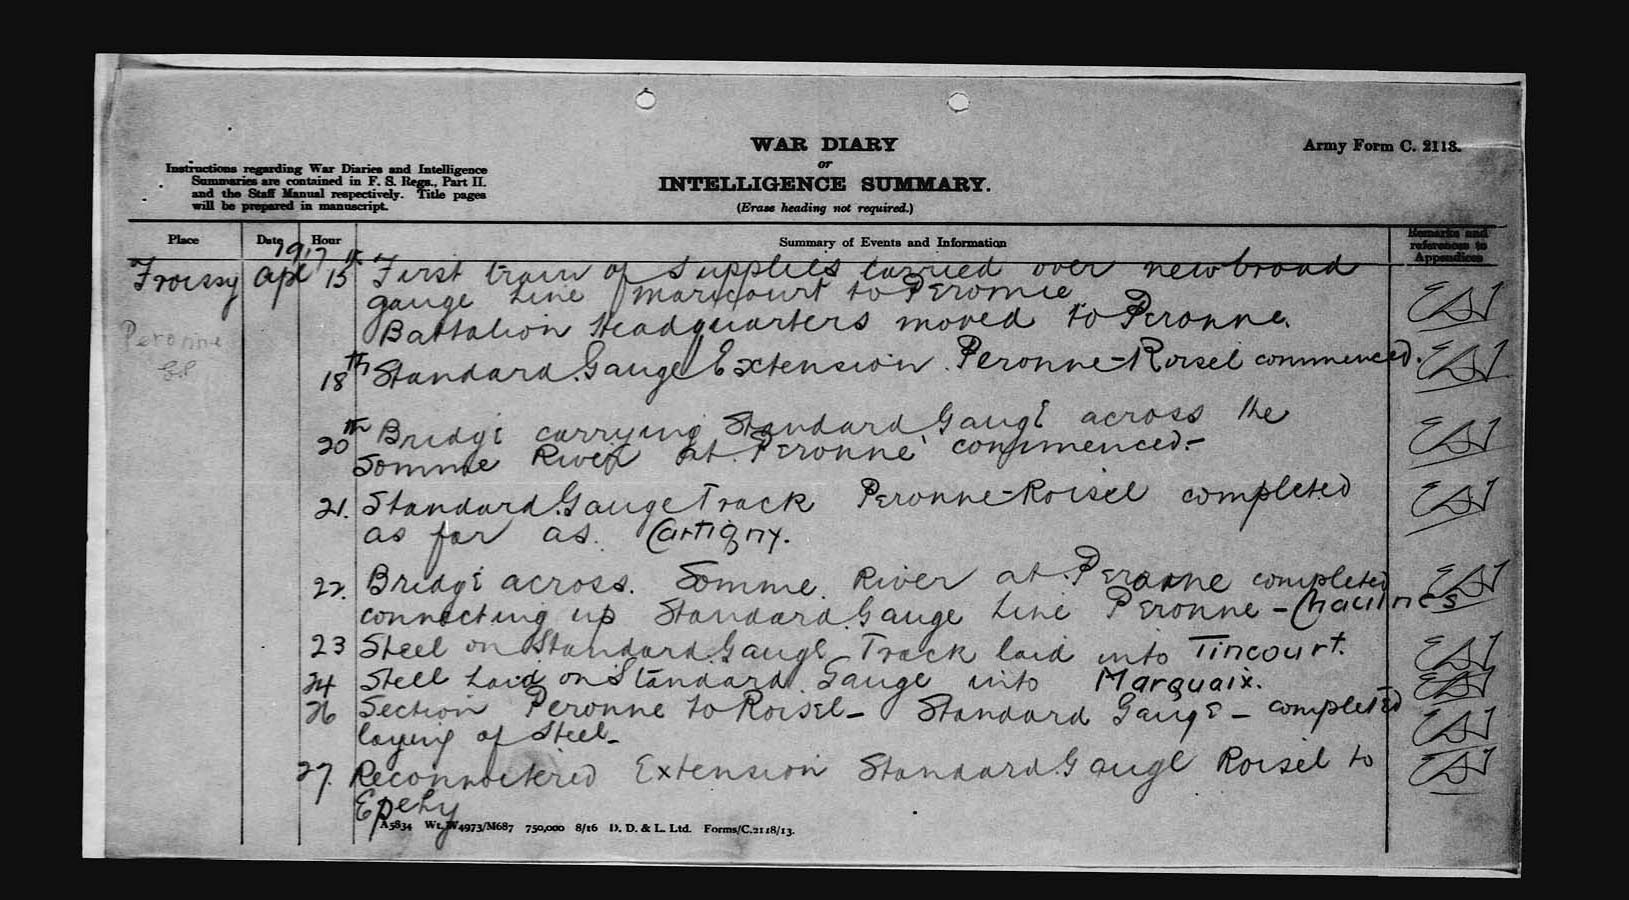 WAR DIARY
or
INTELLIGENCE SUMMARY.
(Erase heading not required.)
Army Form C. 2118.
Instructions regarding War Diaries and Intelligence
Summaries are contained in F. S. Regs., Part II.
and the Staff Manual respectively. Title pages
will be prepared in manuscript.
Place Date Hour Summary of Events and Information Remarks and
references to
Appendices
1917
Froissy Apl 15th First train of supplies carried over new broad
gauge Line Maricourt to Peronne
Battalion Headquarters moved to Peronne.
Peronne
18th Standard Gauge Extension Peronne-Roisel commenced.
20th Bridge carrying Standard Gauge across the
Somme River at Peronne commenced-
21. Standard Gauge Track Peronne-Roisel completed
as far as Cartigny.
22. Bridge across Somme River at Peronne completed
connecting up Standard Gauge Line Peronne - Chaulnes
23 Steel on Standard Gauge Track laid into Tincourt.
24 Steel Laid on Standard Gauge into Marquaix.
26 Section Peronne to Roisel- Standard Gauge - completed
laying of Steel-
27. Reconnoitered Extension Standard Gauge Roisel to
Epehy
A5834 Wt.W4973/M687 750,000 8/16 D. D. & L. Ltd. Forms/C.2118/13.